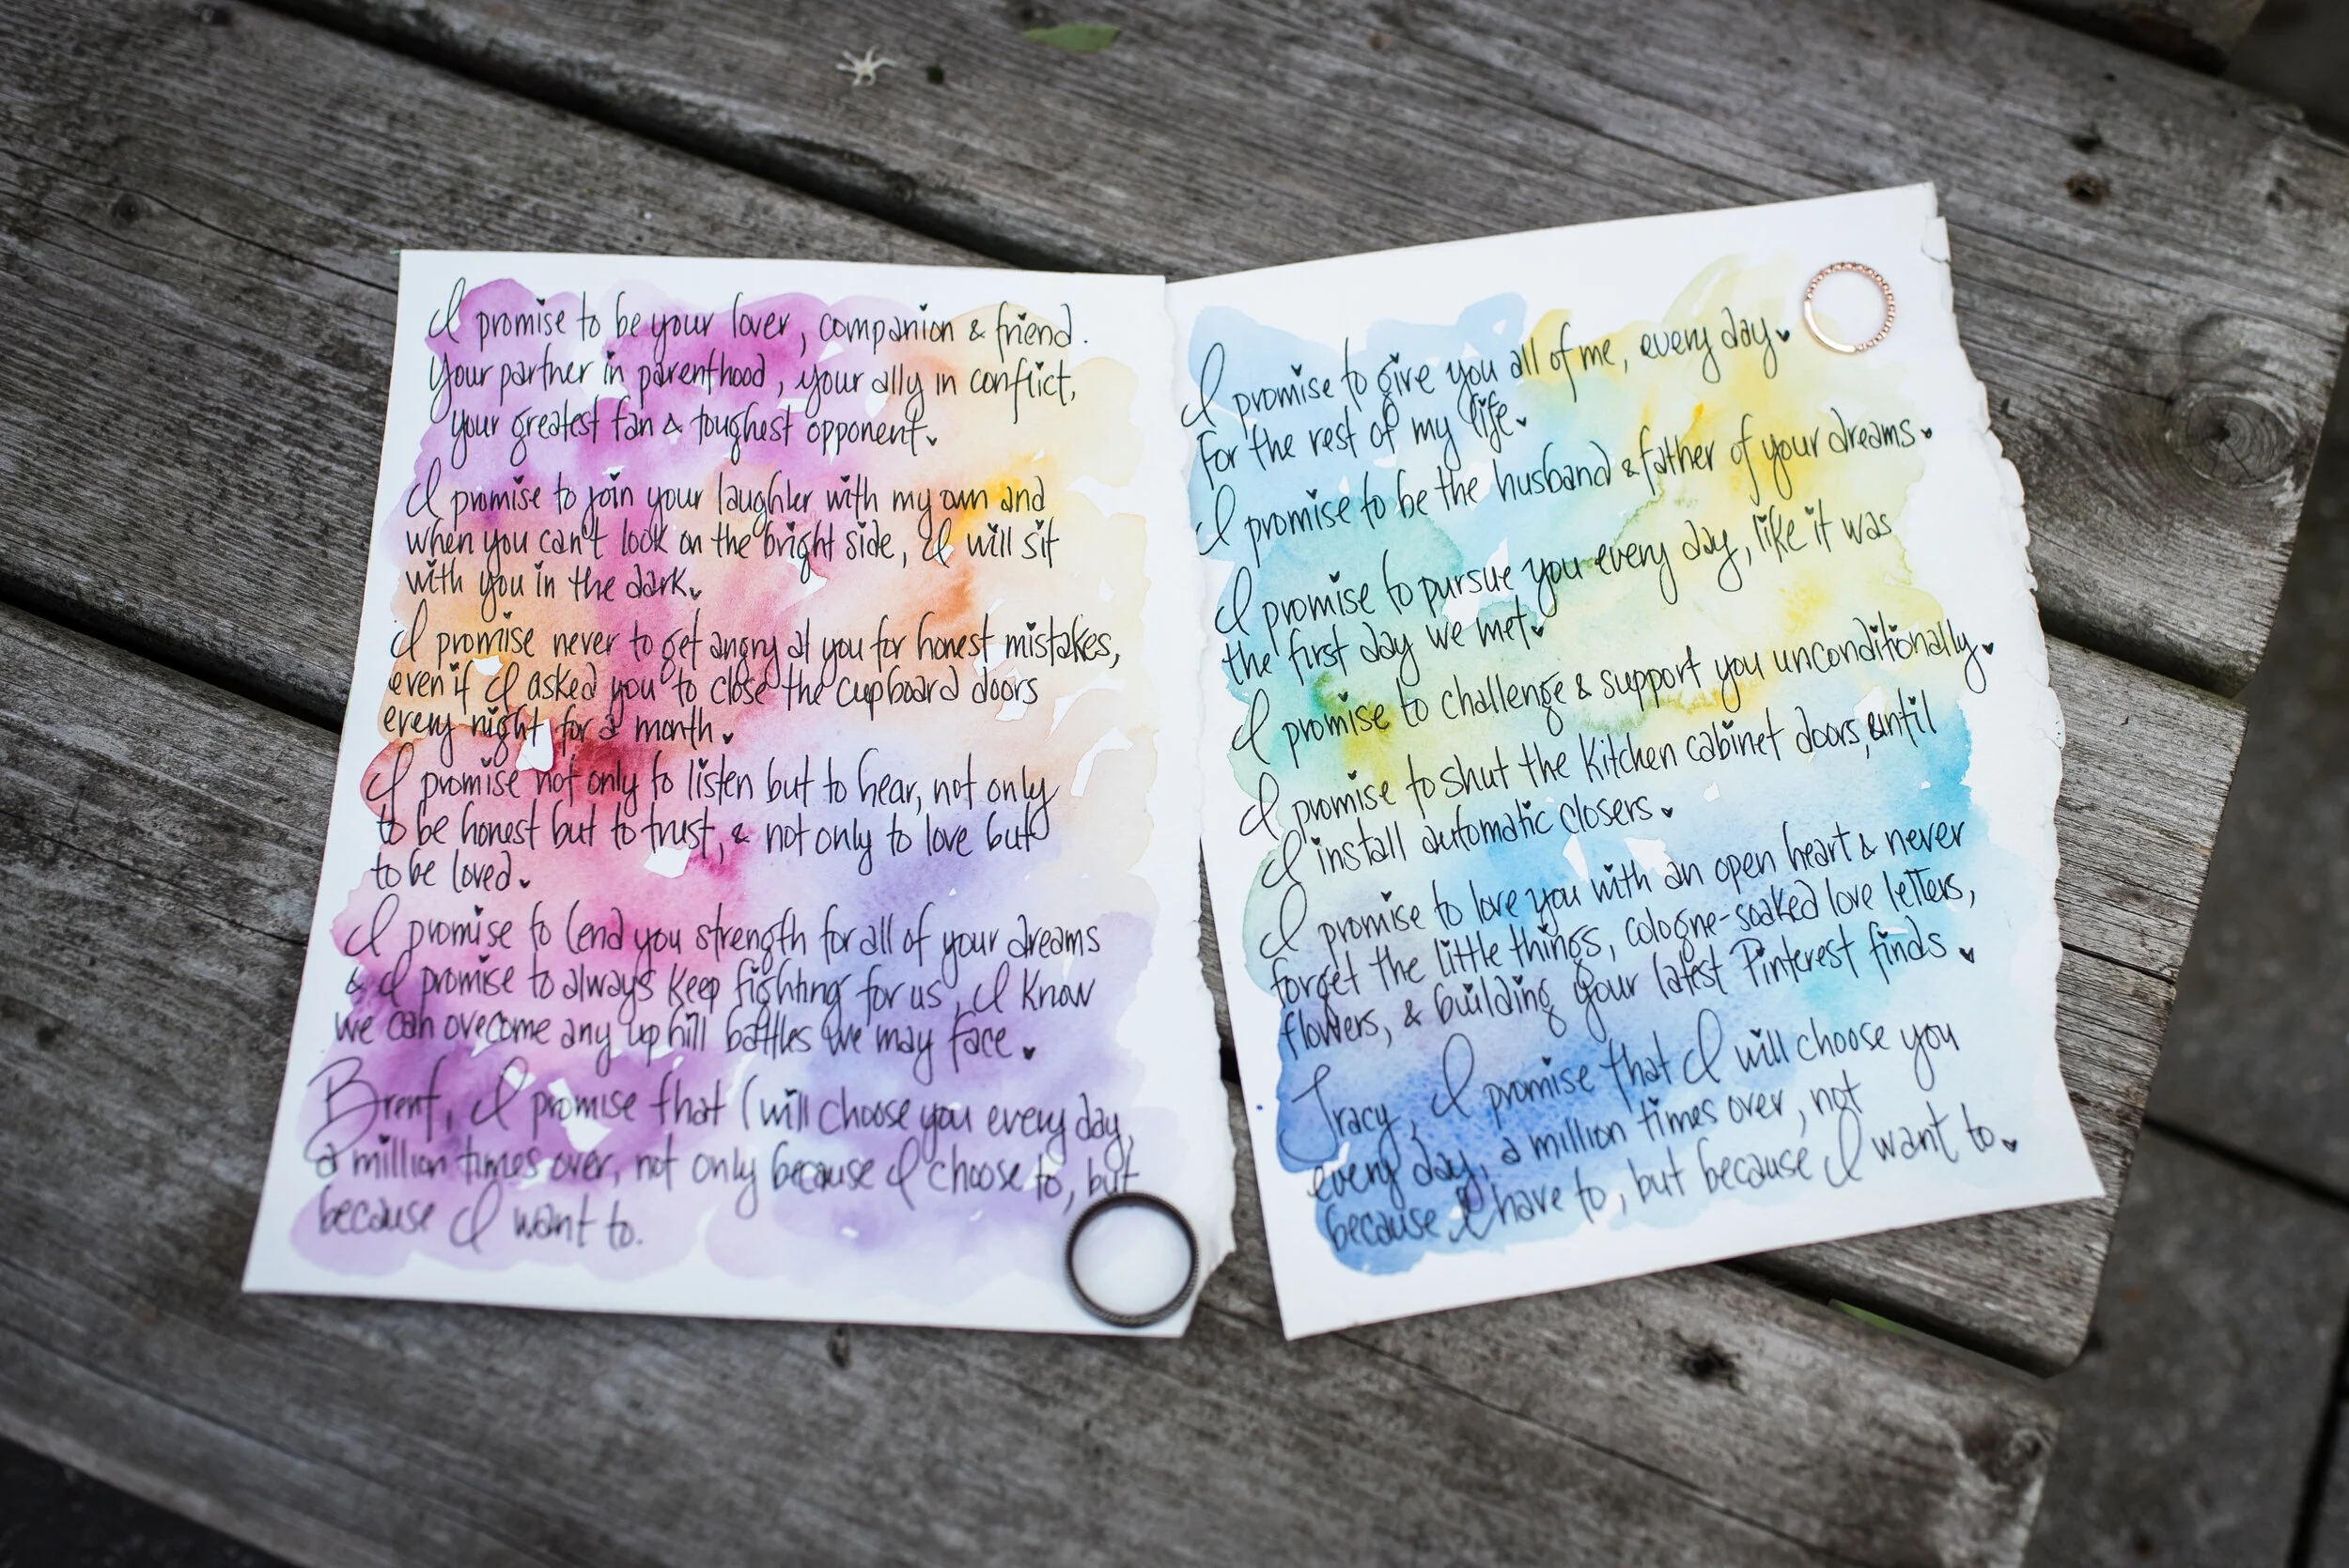 I promise to be your lover, companion & friend.
Your partner in parenthood, your ally in conflict,
your greatest fan & toughest opponent.
I promise to join your laughter with my own and
when you can't look on the bright side, I will sit
with you in the dark.
I promise never to get angry at you for honest mistakes,
even if I asked you to close the cupboard doors
every night for a month.
I promise not only to listen but to hear, not only
to be honest but to trust, & not only to love but
to be loved.
I promise to lend you strength for all of your dreams
& I promise to always keep fighting for us, I know
we can overcome any up hill battles we may face.
Brent, I promise that I will choose you every day,
a million times over, not only because I choose to, but
because I want to.
I promise to give you all of me, every day
for the rest of my life.
I promise to be the husband & father of your dreams.
I promise to pursue you every day, like it was
the first day we met.
I promise to challenge & support you unconditionally.
I promise to shut the kitchen cabinet doors, until
I install automatic closers.
I promise to love you with an open heart & never
forget the little things, cologne-soaked love letters,
flowers, & building your latest Pinterest finds.
Tracy, I promise that I will choose you
every day, a million times over, not
because I have to, but because I want to.